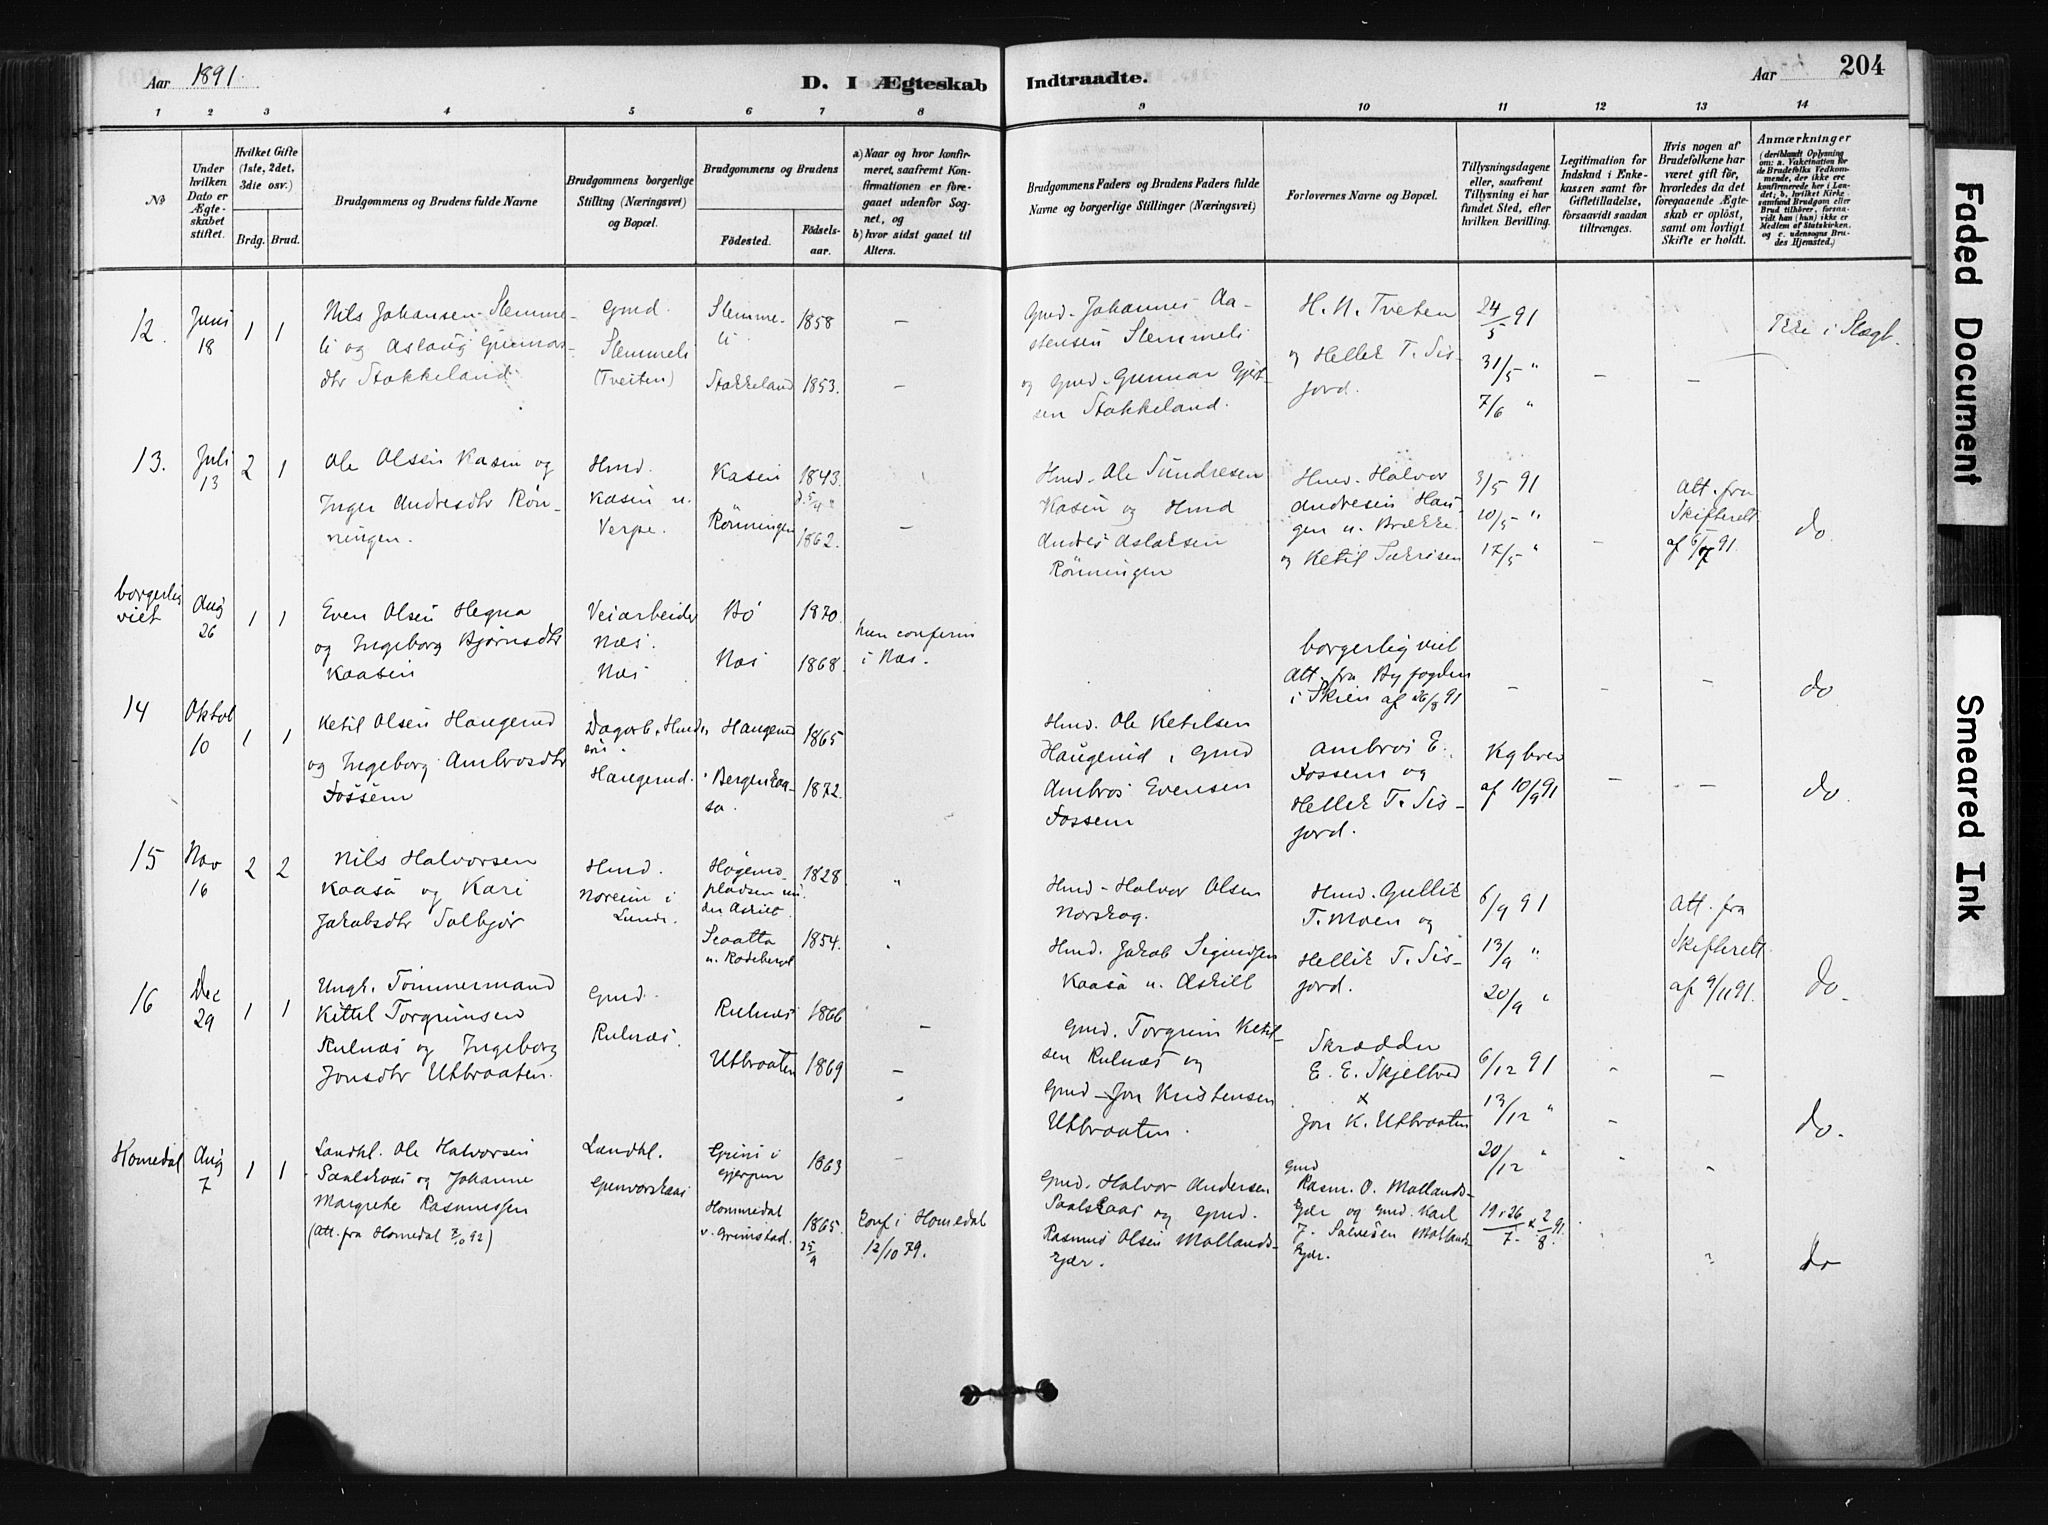 Aar 1891.
D. I Ægteskab
Indtraadte.
Aar
204
1 2 3 4 5 6 7 8
9 10 11 12 13 14
No
Under hvilken Dato er Ægteskabet stiftet.
Hvilket Gifte (1ste, 2det, 3die osv.)
Brdg. Brud.
Brudgommens og Brudens fulde Navne
Brudgommens borgerlige Stilling (Næringsvei) og Bopæl.
Brudgommens og Brudens
Fødested.
Fødselsaar.
a) Naar og hvor konfirmeret, saafremt Konfirmationen er foregaaet udenfor Sognet, og
b) hvor sidst gaaet til Alters.
Brudgommens Faders og Brudens Faders fulde Navne og borgerlige Stillinger (Næringsvei)
Forlovernes Navne og Bopæl.
Tillysningsdagene eller, saafremt Tillysning ei har fundet Sted, efter hvilken Bevilling.
Legitimation for Indskud i Enkekassen samt for Giftetilladelse, forsaavidt saadan tiltrænges.
Hvis nogen af Brudefolkene har været gift før, hvorledes da det foregaaende Ægteskab er opløst, samt om lovligt Skifte er holdt.
Anmærkninger
(deriblandt Oplysning om: a. Vakcination for de Brudefolks Vedkommende, der ikke ere konfirmerede her i Landet; b. hvilket Kirkesamfund Brudgom eller Brud tilhører, forsaavidt han (hun) ikke er Medlem af Statskirken, og c. udensogns Brudes Hjemsted.)
12. Juni 18 1 1
Nils Johansen Slemmeli og Aslaug Gunnarsdtr Stokkeland
Gmd. Slemmeli (Tveiten)
Slemmeli 1858 –
Stokkeland 1853. –
Gmd. Johannes Aastensen Slemmeli og Gmd. Gunnar Gjestsen Stokkeland.
H. N. Tveten og Hellek T. Sisjord.
24/5 91
31/5 "
7/6 "
–
–
Ikke i Slægt.
13. Juli 13 2 1
Ole Olsen Kasin og Inger Andresdtr Rønningen.
Hmd. Kasin u. Verpe.
Kasin 1843.
Rønningen 1862. –
Hmd. Ole Sundresen Kasin og Hmd Andres Aslaksen Rønningen
Hmd. Halvor Andresen Haugen u. Brække og Ketil Sakrisen
3/5 91
10/5 "
17/5 "
–
Att. fra Skifteret af 6/7 91.
do
borgerlig viet Aug 26 1 1
Even Olsen Hegna og Ingeborg Bjørnsdtr Kaasin
Veiarbeider Næs. Næs
Bø 1870.
Næs 1868.
hun conferm i Næs.
borgerlig viet Att. fra Byfogden i Skien af 26/8 91
– – –
do
14 Oktob 10 1 1
Ketil Olsen Haugerud og Ingeborg Ambrosdtr Fossem
Haugerud.
Haugerud 1865
Bergenkaasa. 1872.
Hmd. Ole Ketilsen Haugerud, Gmd Ambros Evensen Fossem
Ambros E. Fossem og Hellek T. Sisjord.
Kgbrev af 10/9 91
–
–
do.
15 Nov 16 2 2
Nils Halvorsen Kaasa og Kari Jakobsdtr Solbjør
Hmd. Noreim i Lunde.
pladsen under Askilt. 1828. "
u. Rodeberget 1854. "
Hmd. Halvor Olsen Norskog.
Hmd. Jakob Sigurdsen Kaasa u. Askilt
Hmd. Gullik T. Moen og Hellik T. Sisjord.
6/9 91
13/9 "
20/9 "
Att. fra Skifterett af 9/11 91.
do.
16 Dec 29 1 1
Ungk. Tømmermand Kittil Torgrimsen Rulnæs og Ingeborg Jonsdtr Utbraaten.
Gmd. Rulnæs.
Rulnæs 1866 –
Utbraaten 1869 –
Gmd. Torgrim Ketilsen Rulnæs og Gmd – Jon Kristensen Utbraaten.
Skrædder E. E. Skjeltved x Jon K. Utbraaten
6/12 91
13/12 "
20/12 "
–
do.
Homedal Aug 7 1 1
Landhl. Ole Halvorsen Saalskaas og Johanne Margrethe Rasmussen
(Att. fra Homedal 7/10 92)
Landhl. Gjenvorskaas
Grini i Gjerpen 1863 –
Hommedal v. Grimstad. 1865. 25/9
Conf i Homedal 12/10 79.
Gmd. Halvor Andersen Saalskaas og Gmd. Rasmus Olsen Mollandskjær.
Gmd Rasm. O. Mollandskjær og Gmd. Karl J. Salvesen Mollandskjær.
19 & 26/7 & 2/8 91.
"
do
Faded Document
Smeared Ink